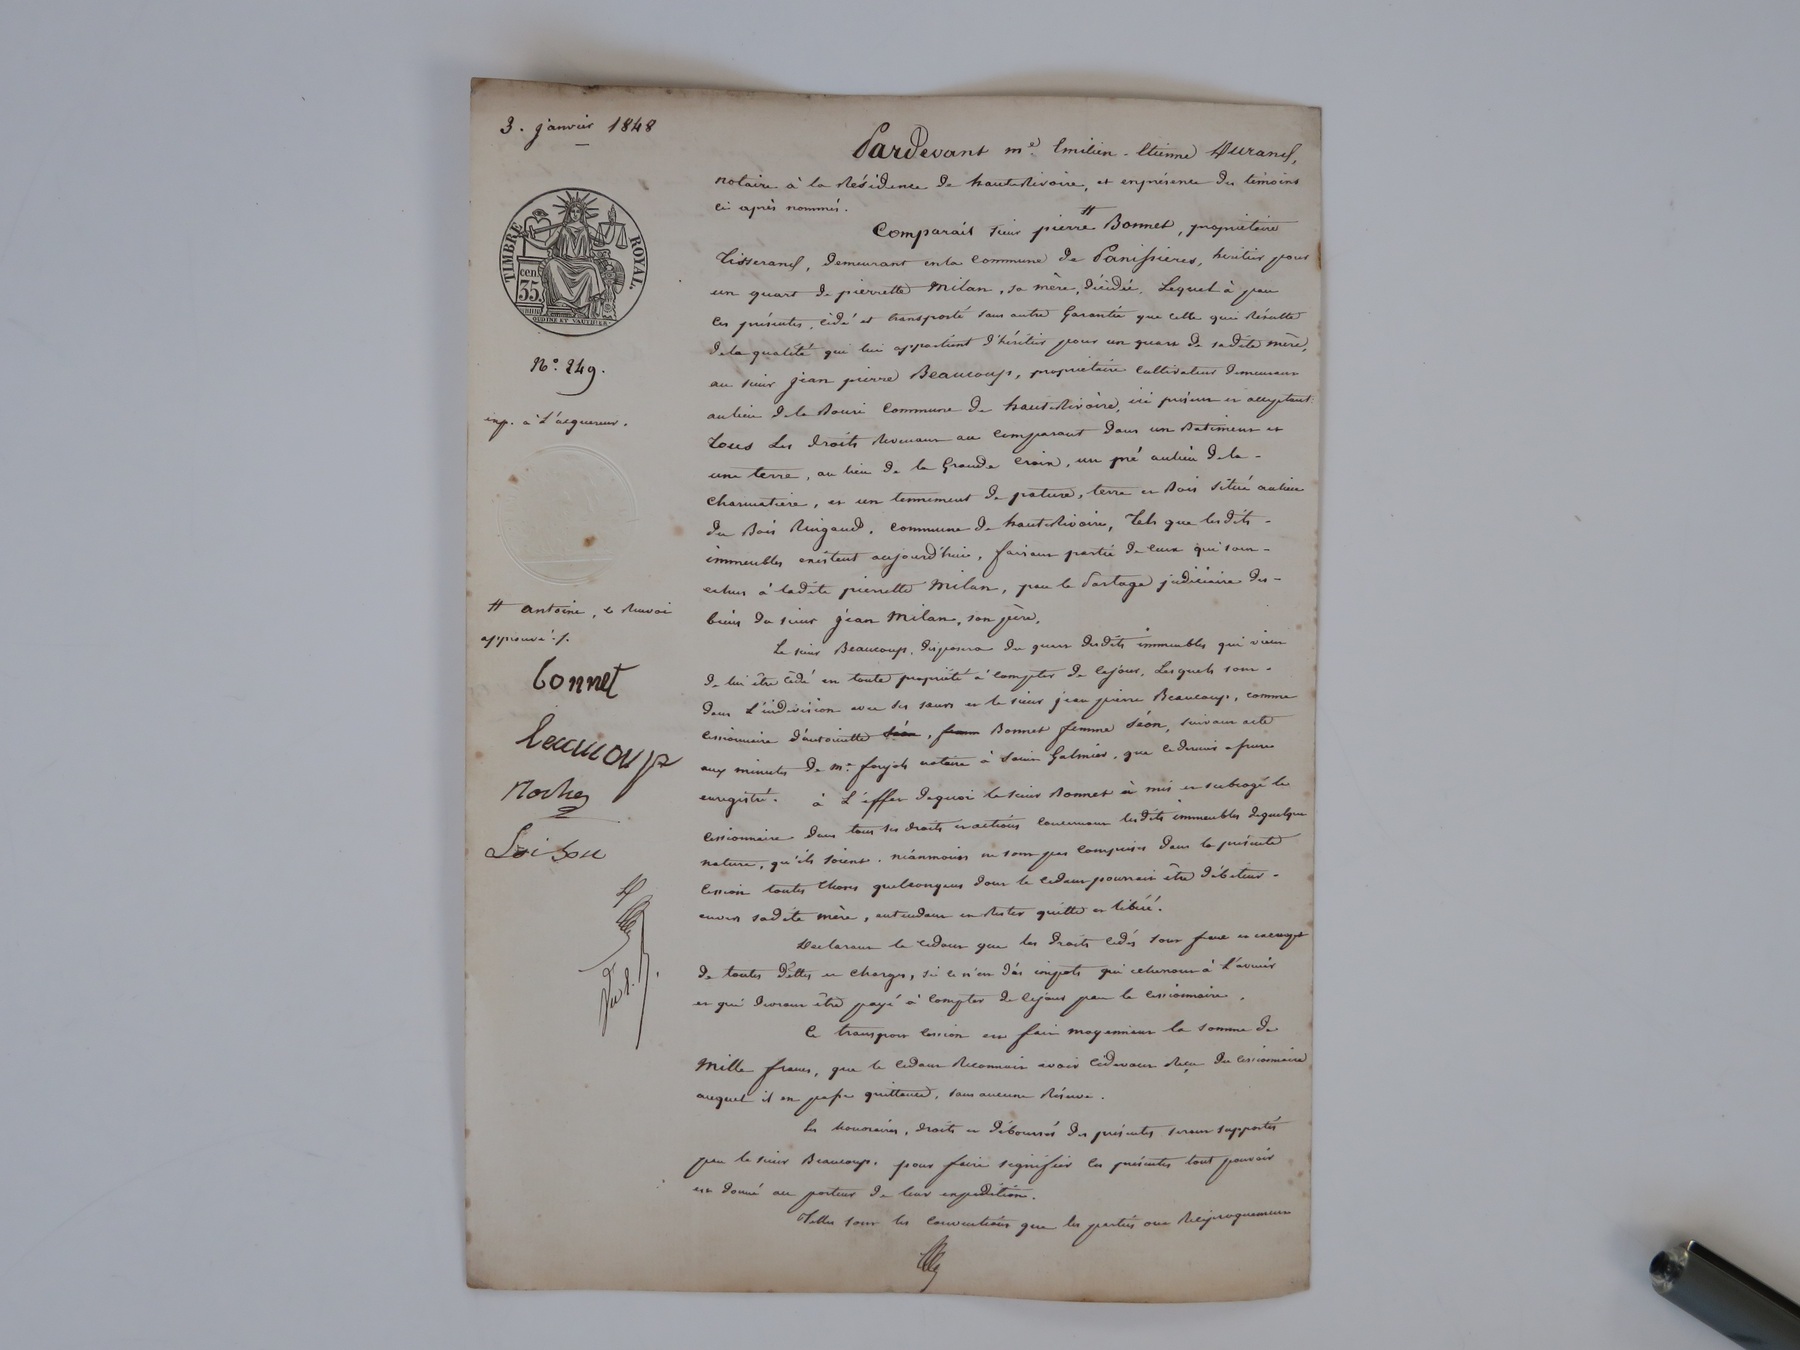 3. janvier 1848
TIMBRE ROYAL.
cen
35.
OUDINE ET VAUTHIER
N°. 249.
exp. à L'acquereur.
# antoine, le Renvoi
approuvé ./.
bonnet
beaucoup
Pardevant me. Emilien-Etienne Durand,
notaire à la Résidence de hauteRivoire, et enprésence des témoins
ci après nommés.
Comparait sieur pierre # Bonnet, propriétaire
Tisserand, demeurant enla commune de Panissieres, héritier pour
un quart de pierrette Milan, sa mère, décédée, Lequel à par
Ces présentes, cédé et transporté sans autre Garantie que celle qui Résulte
dela qualité qui lui appartient d'héritier pour un quart de sadite mère,
au sieur jean pierre Beaucoup, propriétaire Cultivateur demeurant
aulieu dela commune de hauteRivoire, ici présent et acceptant:
Tous Les droits Revenant au Comparant dans un Batiment et
une terre, au lieu de la Grande Croix, un pré aulieu dela -
Charmatière, et un tennement de pature, terre et Bois situé aulieu
du Bois Ringaud, commune de hauteRivoire, Tels que lesdits -
immeubles existent aujourd'hui, faisant partie de ceux qui sont -
echus à ladite pierrette Milan, par le Partage judiciaire des -
biens du sieur jean Milan, son père.
Le sieur Beaucoup, disposera du quart desdits immeubles qui vient
de lui être cédé en toute propriété à compter de cejour, Lesquels sont -
dans L'indivision avec ses sœurs et le sieur jean pierre Beaucoup, comme
Cessionnaire d'antoinette Séon, femme Bonnet femme Séon, suivant acte
aux minutes de Me. notaire à Saint Galmier, que ce dernier affirme
enregistré. à L'effet dequoi le sieur Bonnet à mis et subrogé le
Cessionnaire dans tous ses droits et actions concernant lesdits immeubles dequelque
nature, qu'ils soient. néanmoins ne sont pas comprises dans la présente
Cession toutes choses quelconques dont le cedant pourrait être débiteur -
envers sadite mère, entendant en Rester quitte et libéré.
Declarant le cedant que les droits cédés sont francs et exempts
de toutes dettes et charges, si ce n'en dès impots qui à L'avenir
et qui devront être payé à compter de cejour par le Cessionnaire.
Ce transport cession est fait moyennant la somme de
Mille francs, que le Cedant Reconnait avoir Cidevant Reçu du Cessionnaire
auquel il en passe quittance, sans aucune Réserve.
Les honoraires, droits et déboursés des présentes seront supportés
par le sieur Beaucoup. pour faire signifier Ces présentes tout pouvoir
est donné au porteur de leur expédition.
Telles sont les conventions que les parties ont Réciproquement